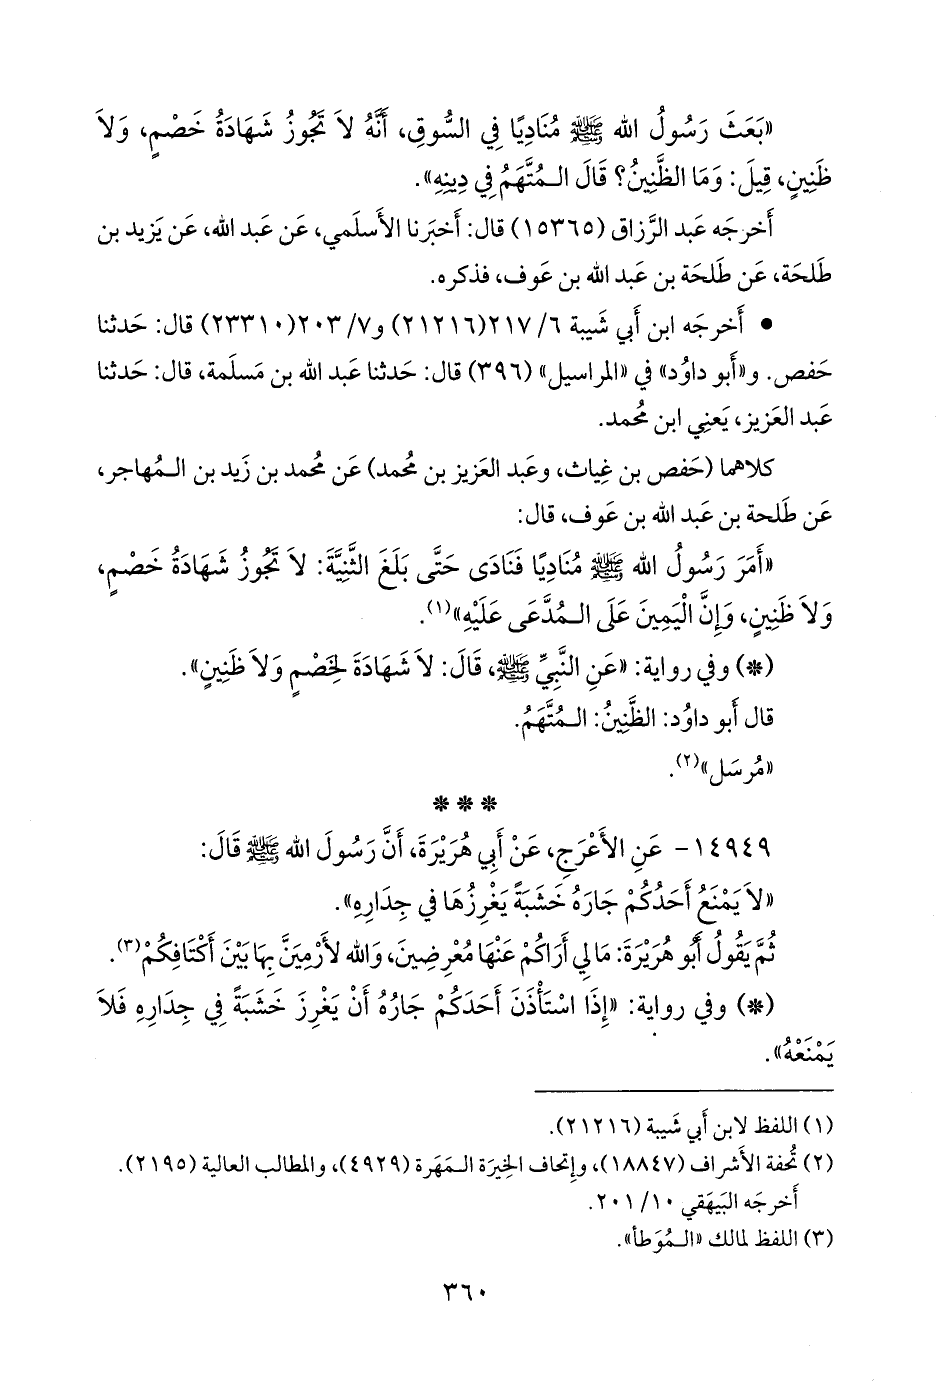 «بَعَثَ رَسُولُ الله ﷺ مُنَادِيًا فِي السُّوقِ، أَنَّهُ لاَ تَجُوزُ شَهَادَةُ خَصْمٍ، وَلاَ
ظَنِينٍ، قِيلَ: وَمَا الظَّنِينُ؟ قَالَ الـمُتَّهَمُ فِي دِينِهِ».
أَخرجَه عَبد الرَّزاق (١٥٣٦٥) قال: أَخبَرنا الأَسلَمي، عَن عَبد الله، عَن يَزيد بن
طَلحَة، عَن طَلحَة بن عَبد الله بن عَوف، فذكره.
• أَخرجَه ابن أَبي شَيبة ٦/ ٢١٧(٢١٢١٦) و٧/ ٢٠٣(٢٣٣١٠) قال: حَدثنا
حَفص. و«أَبو داوُد» في «المراسيل» (٣٩٦) قال: حَدثنا عَبد الله بن مَسلَمة، قال: حَدثنا
عَبد العَزيز، يَعنِي ابن مُحمد.
كلاهما (حَفص بن غِياث، وعَبد العَزيز بن مُحمد) عَن مُحمد بن زَيد بن الـمُهاجر،
عَن طَلحة بن عَبد الله بن عَوف، قال:
«أَمَرَ رَسُولُ الله ﷺ مُنَادِيًا فَنَادَى حَتَّى بَلَغَ الثَّنِيَّةَ: لاَ تَجُوزُ شَهَادَةُ خَصْمٍ،
وَلاَ ظَنِينٍ، وَإِنَّ الْيَمِينَ عَلَى الـمُدَّعَى عَلَيْهِ»(١).
(*) وفي رواية: «عَنِ النَّبِيِّ ﷺ، قَالَ: لاَ شَهَادَةَ لِخَصْمٍ وَلاَ ظَنِينٍ».
قال أَبو داوُد: الظَّنِينُ: الـمُتَّهَمُ.
«مُرسَل»(٢).
* * *
١٤٩٤٩- عَنِ الأَعْرَجِ، عَنْ أَبِي هُرَيْرَةَ، أَنَّ رَسُولَ الله ﷺ قَالَ:
«لاَ يَمْنَعُ أَحَدُكُمْ جَارَهُ خَشَبَةً يَغْرِزُهَا فِي جِدَارِهِ».
ثُمَّ يَقُولُ أَبُو هُرَيْرَةَ: مَا لِي أَرَاكُمْ عَنْهَا مُعْرِضِينَ، وَالله لأَرْمِيَنَّ بِهَا بَيْنَ أَكْتَافِكُمْ(٣).
(*) وفي رواية: «إِذَا اسْتَأْذَنَ أَحَدَكُمْ جَارُهُ أَنْ يَغْرِزَ خَشَبَةً فِي جِدَارِهِ فَلاَ
يَمْنَعْهُ».
(١) اللفظ لابن أَبي شَيبة (٢١٢١٦).
(٢) تُحفة الأَشراف (١٨٨٤٧)، وإِتحاف الخِيرَة الـمَهَرة (٤٩٢٩)، والمطالب العالية (٢١٩٥).
أَخرجَه البَيهَقي ١٠/ ٢٠١.
(٣) اللفظ لمالك «الـمُوَطأ».
٣٦٠